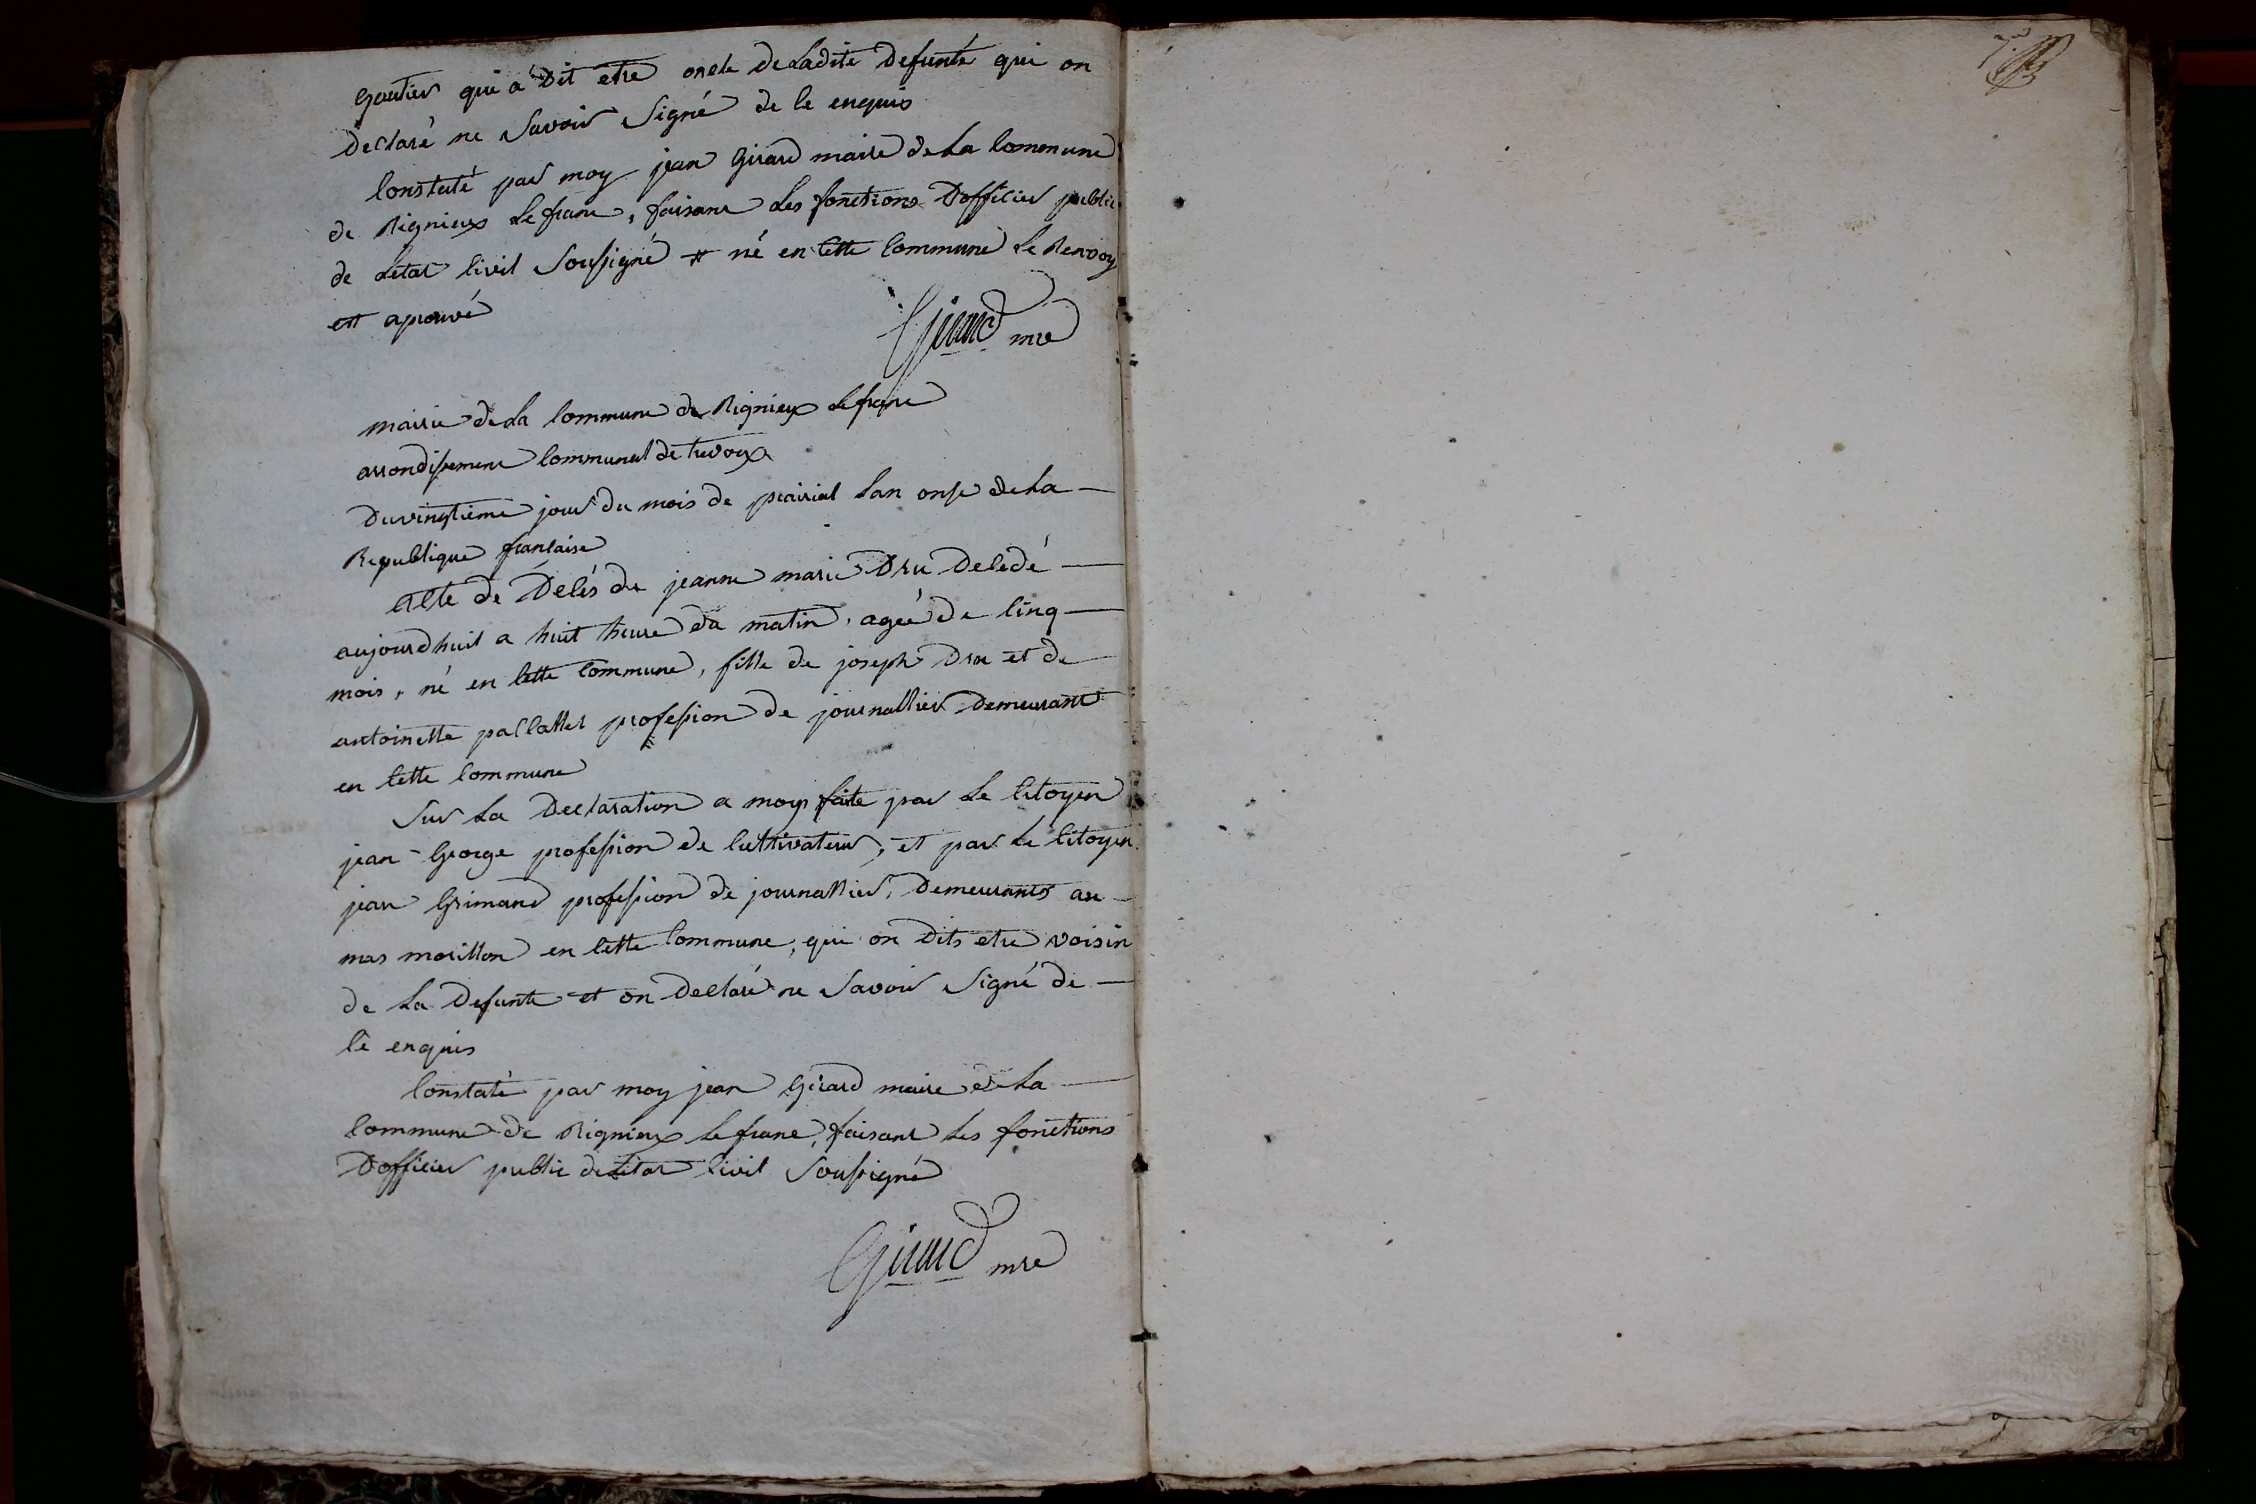 gautier qui a Dit etre oncle de Ladite Defunte qui on
declaré ne Savoir Signé de ce enquis
Constaté par moy jean Girard maire de La Commune
de Rignieux Lefranc, faisant Les fonctions D'officier public
de Letat Civil Sousigné # né en Cette Commune Le Renvoy
est aprouvé
Girard mre
mairie de La Commune de Rignieux Lefranc
arrondisement Communal de trevoux
Du vingtieme jour du mois de prairial Lan onse de La
Republique francaise
acte de Décés de jeanne marie Dru Decedé
aujourdhuit a huit heure da matin, ageé de Cinq
mois, né en Cette Commune, fille de joseph Dru et de
antoinette profession de journallier demeurant
en Cette Commune
Sur La Declaration a moy faite par Le Citoyen
jean George profession de Cultivateur, et par Le Citoyen
jean Grimand profession de journallier, Demeurants au
mas morillon en Cette Commune, qui on Dits etre voisin
de La Defunte et on Declaré ne Savoir Signé de
Ce enquis
Constaté par moy jean Girard maire de La
Commune de Rignieux Lefranc, faisant Les fonctions
D'officier public de Letat Civil Sousigné
Girard mre